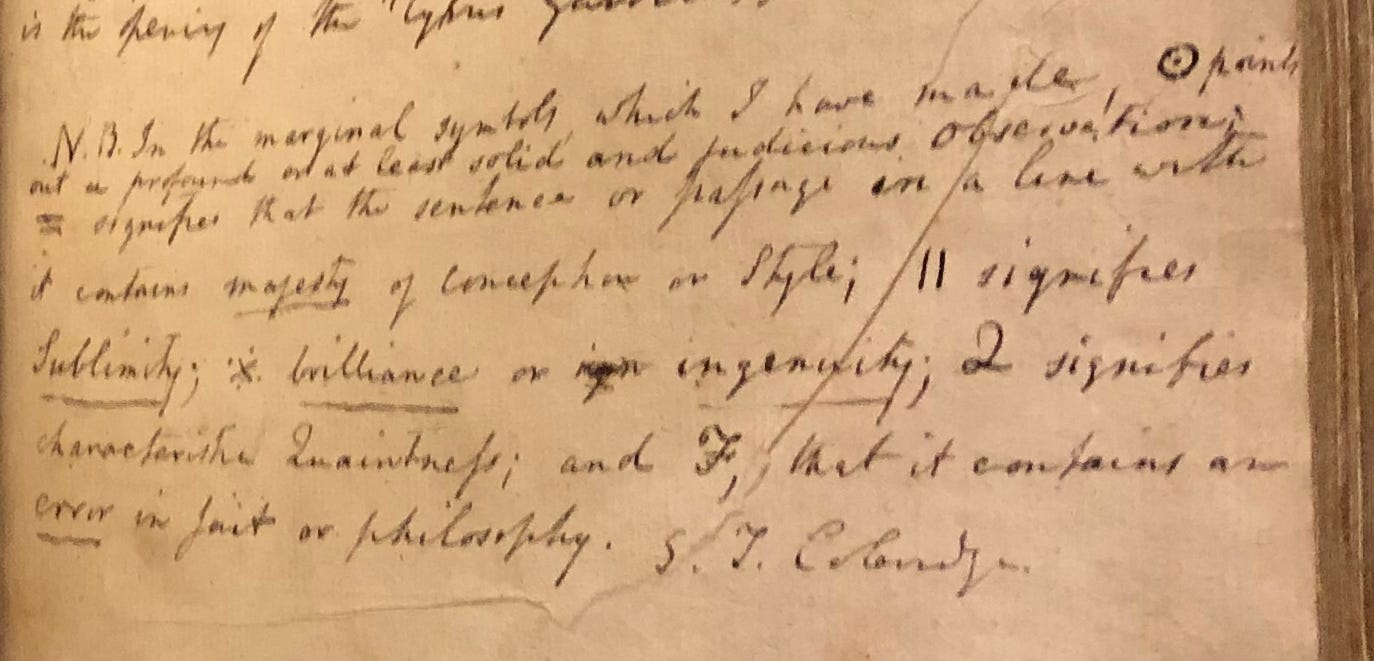 is the opening of the "Cyrus Garden
N.B. In the marginal symbols, which I have made, ☉ points
out a profound or at least solid and judicious observation;
= signifies that the sentence or passage in a line with
it contains majesty of conception or Style; || signifies
Sublimity; ※ brilliance or ingenuity; Q signifies
characteristic Quaintness; and F, that it contains an
error in fact or philosophy. S. T. Coleridge.